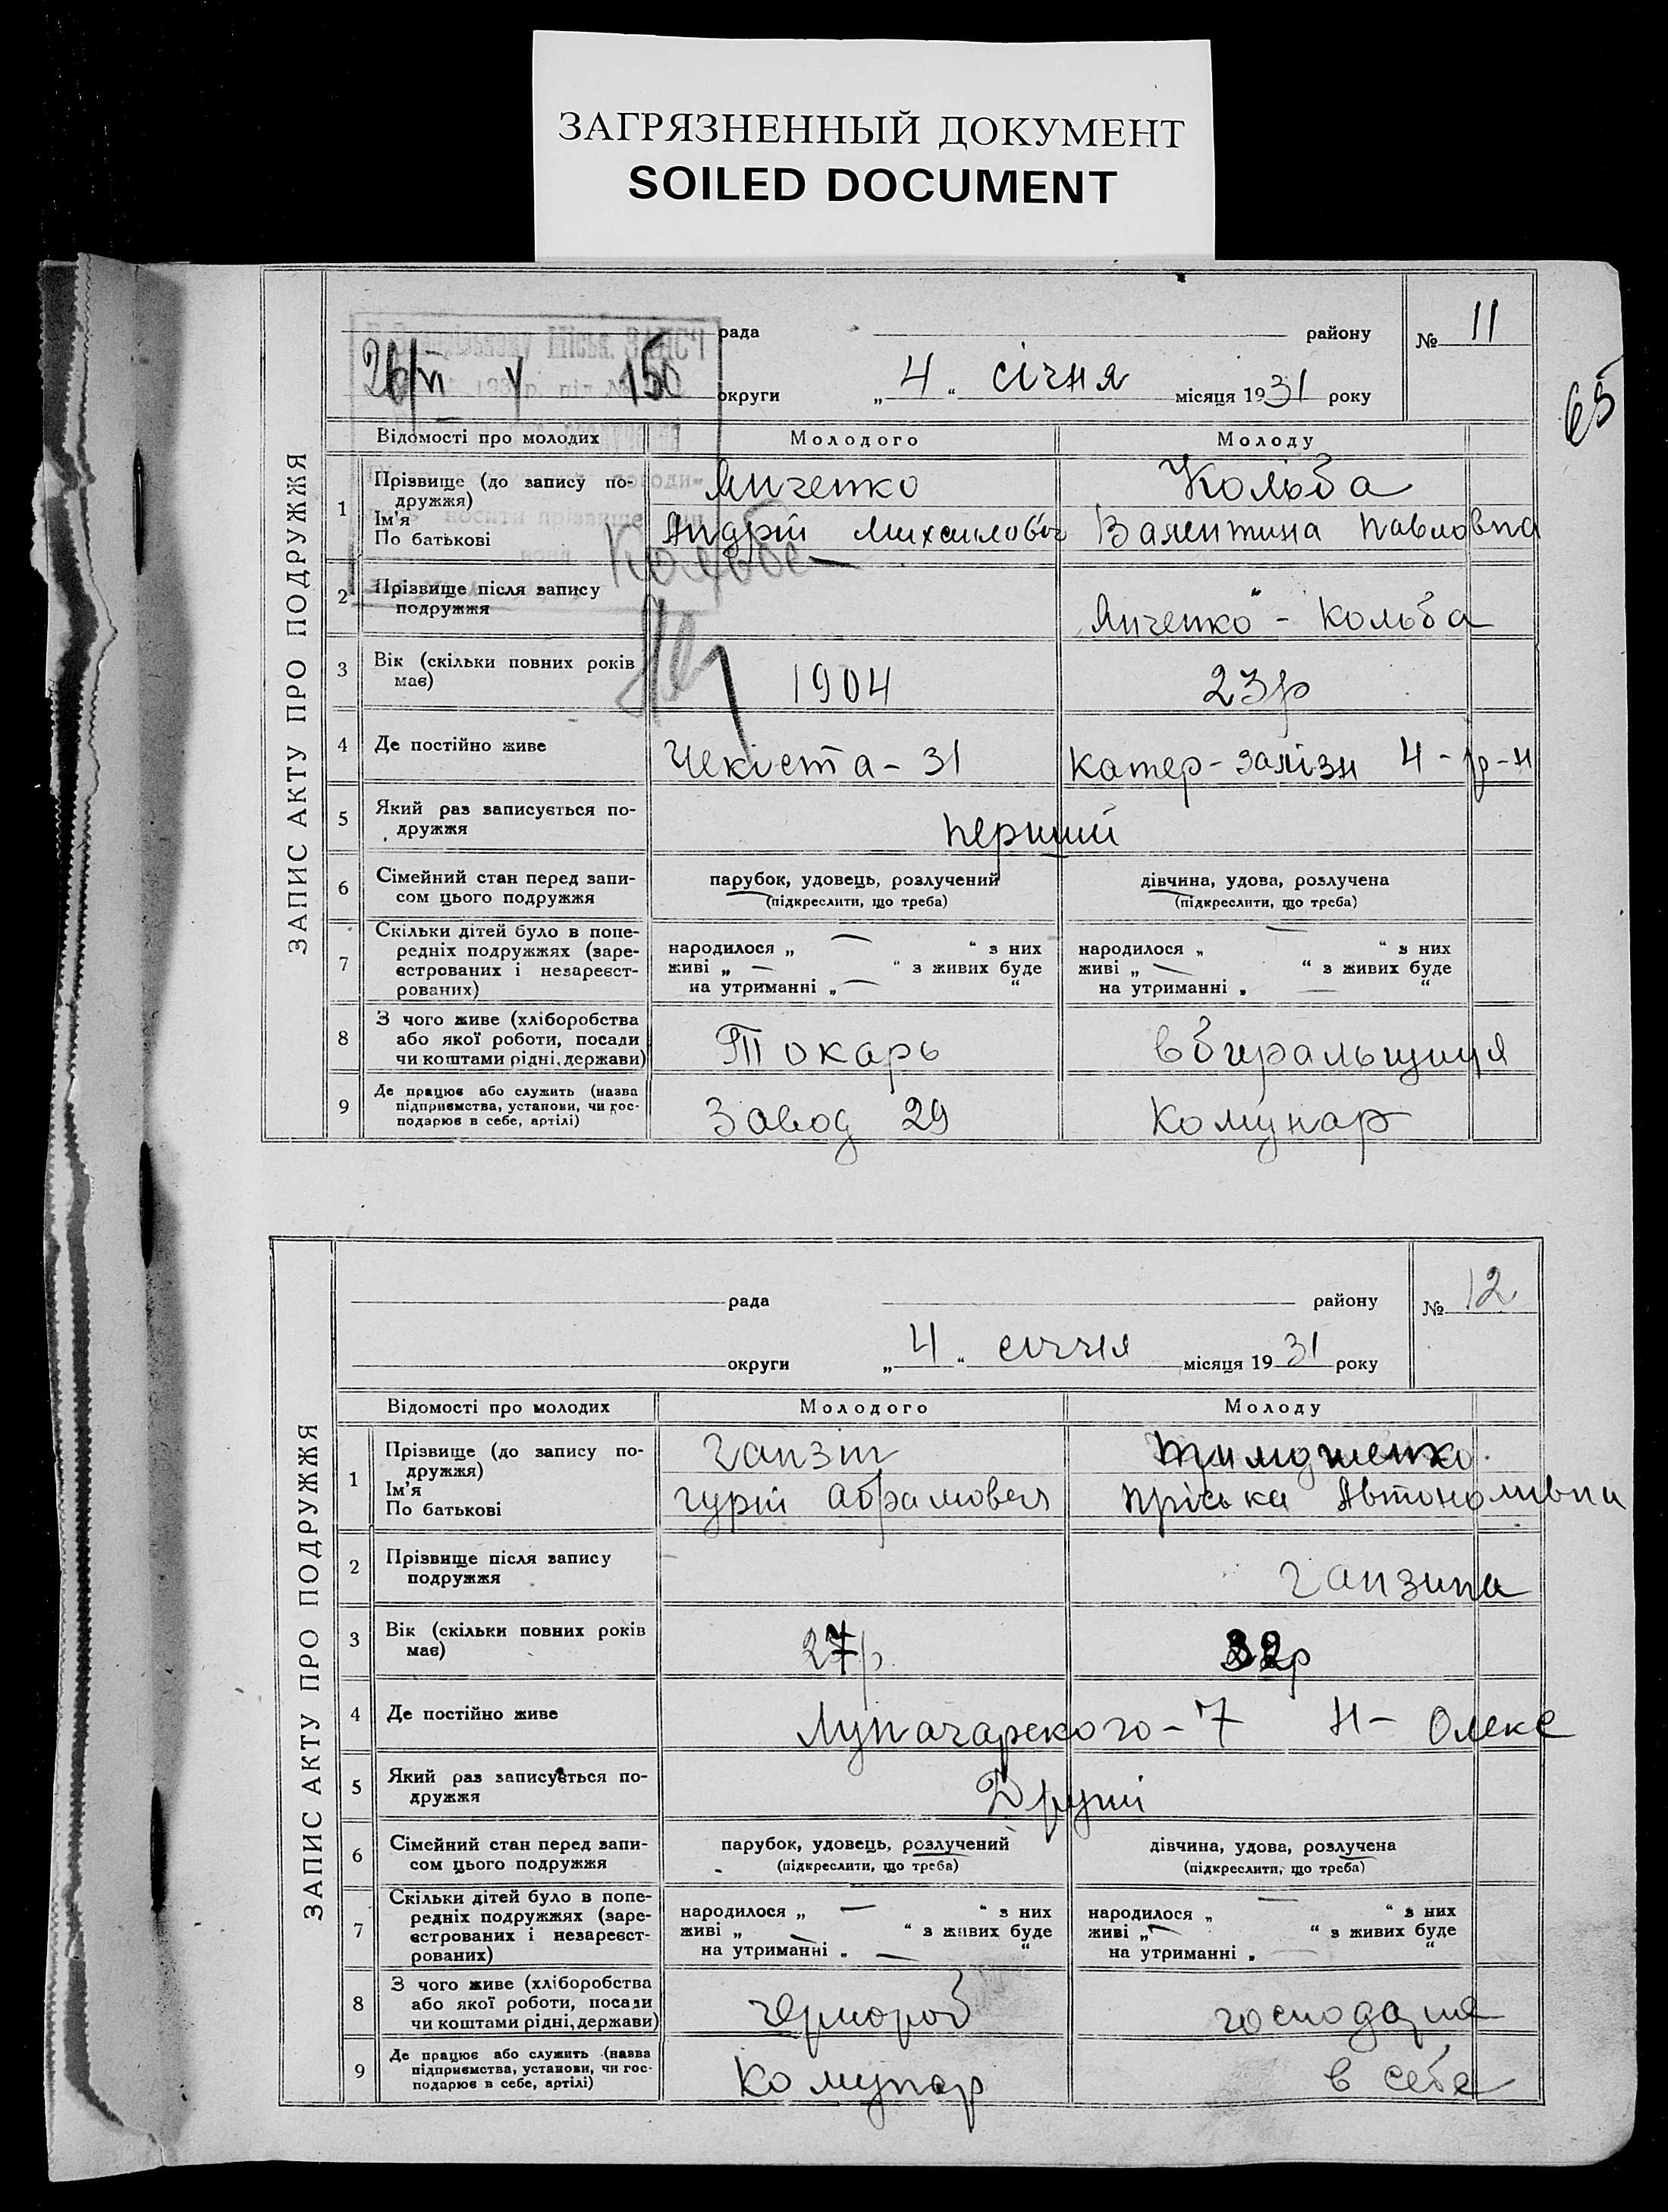 ЗАГРЯЗНЕННЫЙ ДОКУМЕНТ
SOILED DOCUMENT
65
ЗАПИС АКТУ ПРО ПОДРУЖЖЯ
рада району № 11
26/VI У 150 округи „4“ січня місяця 1931 року
Відомості про молодих Молодого Молоду
1 Прізвище (до запису по-
дружжя)
Ім'я
По батькові
Янченко Кольба
Андрій Михайлович Валентина Павловна
Кольба
2 Прізвище після запису
подружжя
Янченко - Кольба
3 Вік (скільки повних років
має)
1904 23р
4 Де постійно живе Чекіста - 31 Катер - залізн 4 - р-н
5 Який раз записується по-
дружжя
перший
6 Сімейний стан перед запи-
сом цього подружжя
парубок, удовець, розлучений дівчина, удова, розлучена
(підкреслити, що треба) (підкреслити, що треба)
7 Скільки дітей було в попе-
редніх подружжях (заре-
єстрованих і незареєст-
рованих)
народилося „ — “ з них народилося „ — “ з них
живі „ — “ з живих буде живі „ — “ з живих буде
на утриманні „ — “ на утриманні „ — “
8 З чого живе (хліборобства
або якої роботи, посади
чи коштами рідні, держави)
Токарь вбиральщиця
9 Де працює або служить (назва
підприємства, установи, чи гос-
подарює в себе, артілі)
Завод 29 Комунар
ЗАПИС АКТУ ПРО ПОДРУЖЖЯ
рада району № 12
округи „4“ січня місяця 1931 року
Відомості про молодих Молодого Молоду
1 Прізвище (до запису по-
дружжя)
Ім'я
По батькові
Ганзин Тимошенко
Гурій Абрамович Пріська Автономивна
2 Прізвище після запису
подружжя
Ганзина
3 Вік (скільки повних років
має)
27р. 32р
4 Де постійно живе Луначарского - 7 Н - Олекс
5 Який раз записується по-
дружжя
Другий
6 Сімейний стан перед запи-
сом цього подружжя
парубок, удовець, розлучений дівчина, удова, розлучена
(підкреслити, що треба) (підкреслити, що треба)
7 Скільки дітей було в попе-
редніх подружжях (заре-
єстрованих і незареєст-
рованих)
народилося „ — “ з них народилося „ — “ з них
живі „ — “ з живих буде живі „ — “ з живих буде
на утриманні „ — “ на утриманні „ — “
8 З чого живе (хліборобства
або якої роботи, посади
чи коштами рідні, держави)
Чернороб господарка
9 Де працює або служить (назва
підприємства, установи, чи гос-
подарює в себе, артілі)
Комунар в себе